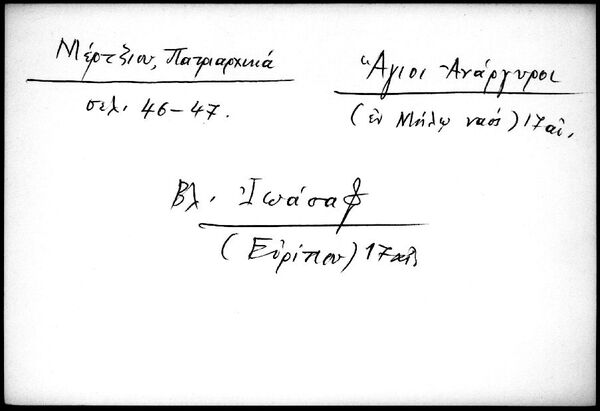 Μέρτζιου, Πατριαρχικά
σελ. 46-47.
Ἅγιοι Ἀνάργυροι
(ἐν Μήλῳ ναός) 17 αἰ.
Βλ. Ἰωάσαφ
(Εὐρίπου) 17 αἰ.